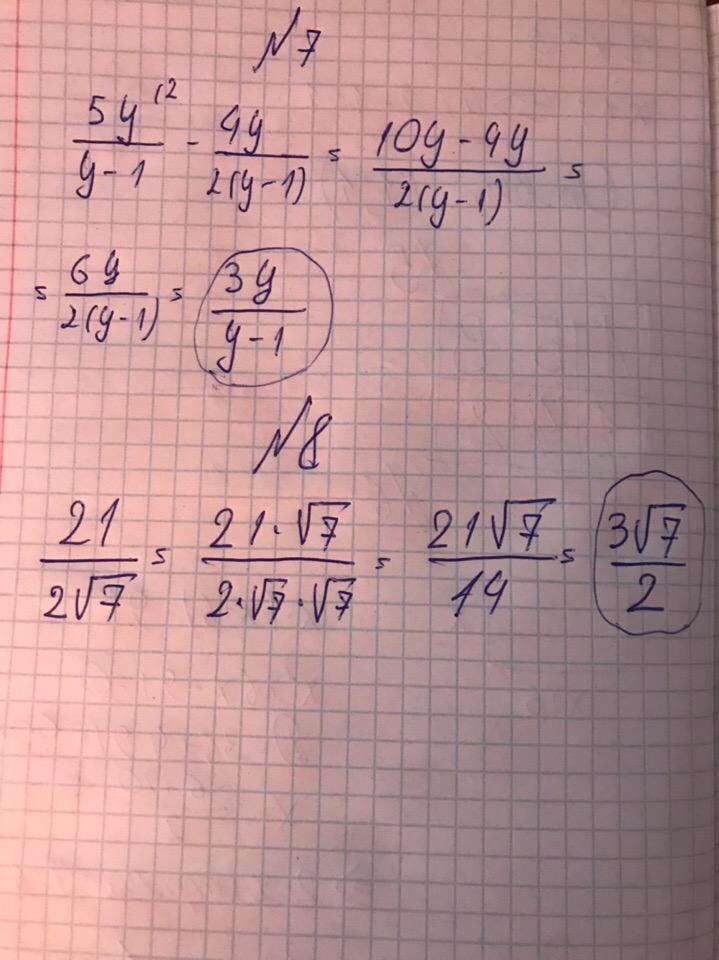 №7
5y^(2 / y-1 - 4y / 2(y-1) = 10y-4y / 2(y-1) =
= 6y / 2(y-1) = 3y / y-1
№8
21 / 2√7 = 21·√7 / 2·√7·√7 = 21√7 / 14 = 3√7 / 2